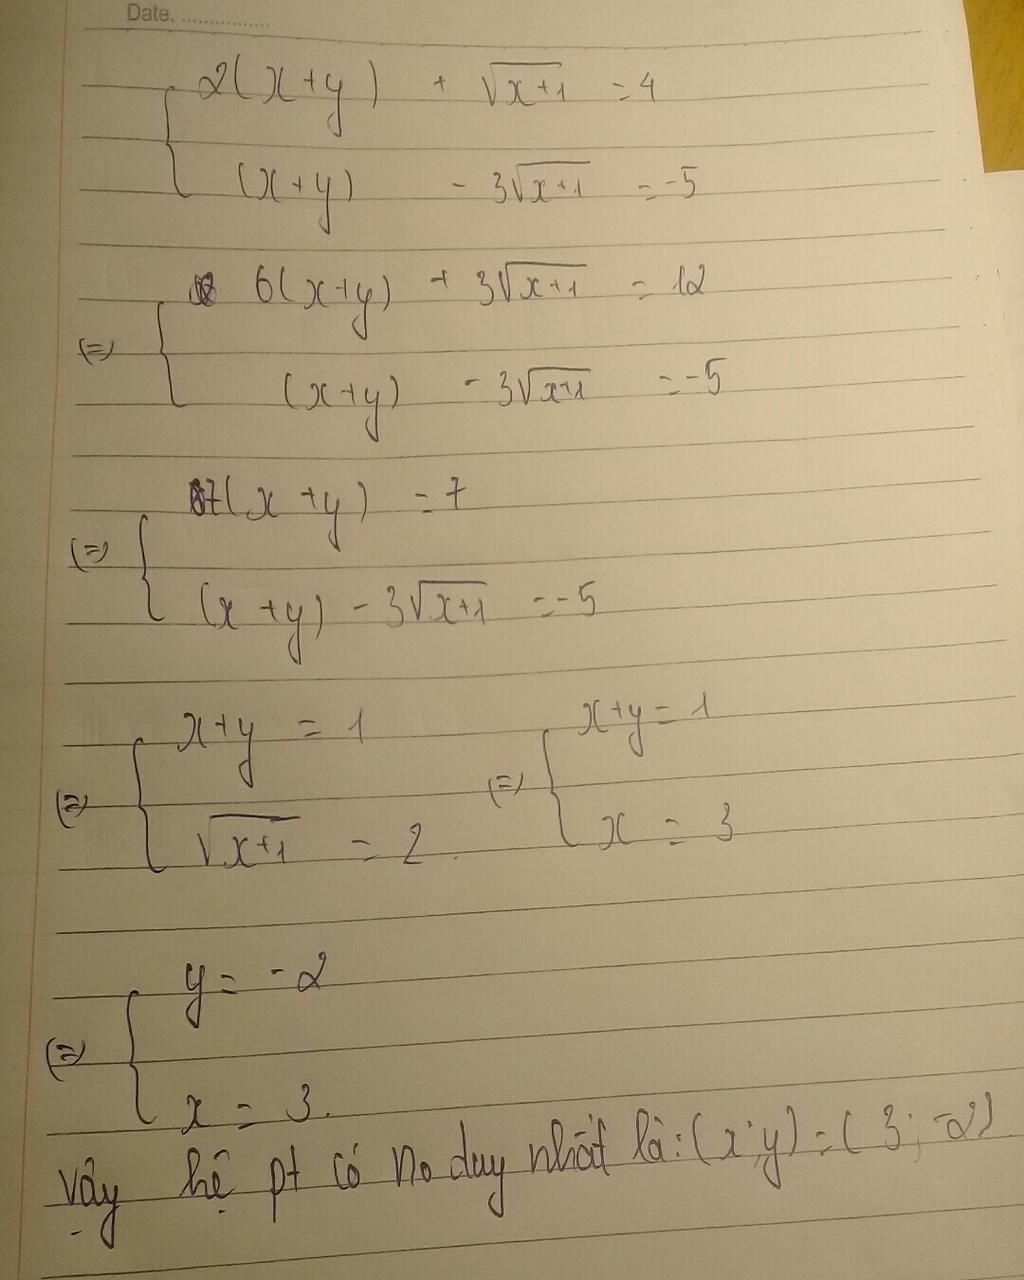 Date. ...............
2(x+y) + √(x+1) = 4
(x+y) - 3√(x+1) = -5
6(x+y) + 3√(x+1) = 12
(=) (x+y) - 3√(x+1) = -5
7(x+y) = 7
(=) (x+y) - 3√(x+1) = -5
x+y = 1 (=) x+y = 1
(=) √(x+1) = 2 x = 3
y = -2
(=) x = 3.
Vậy hệ pt có no duy nhất là: (x;y) = (3; -2)